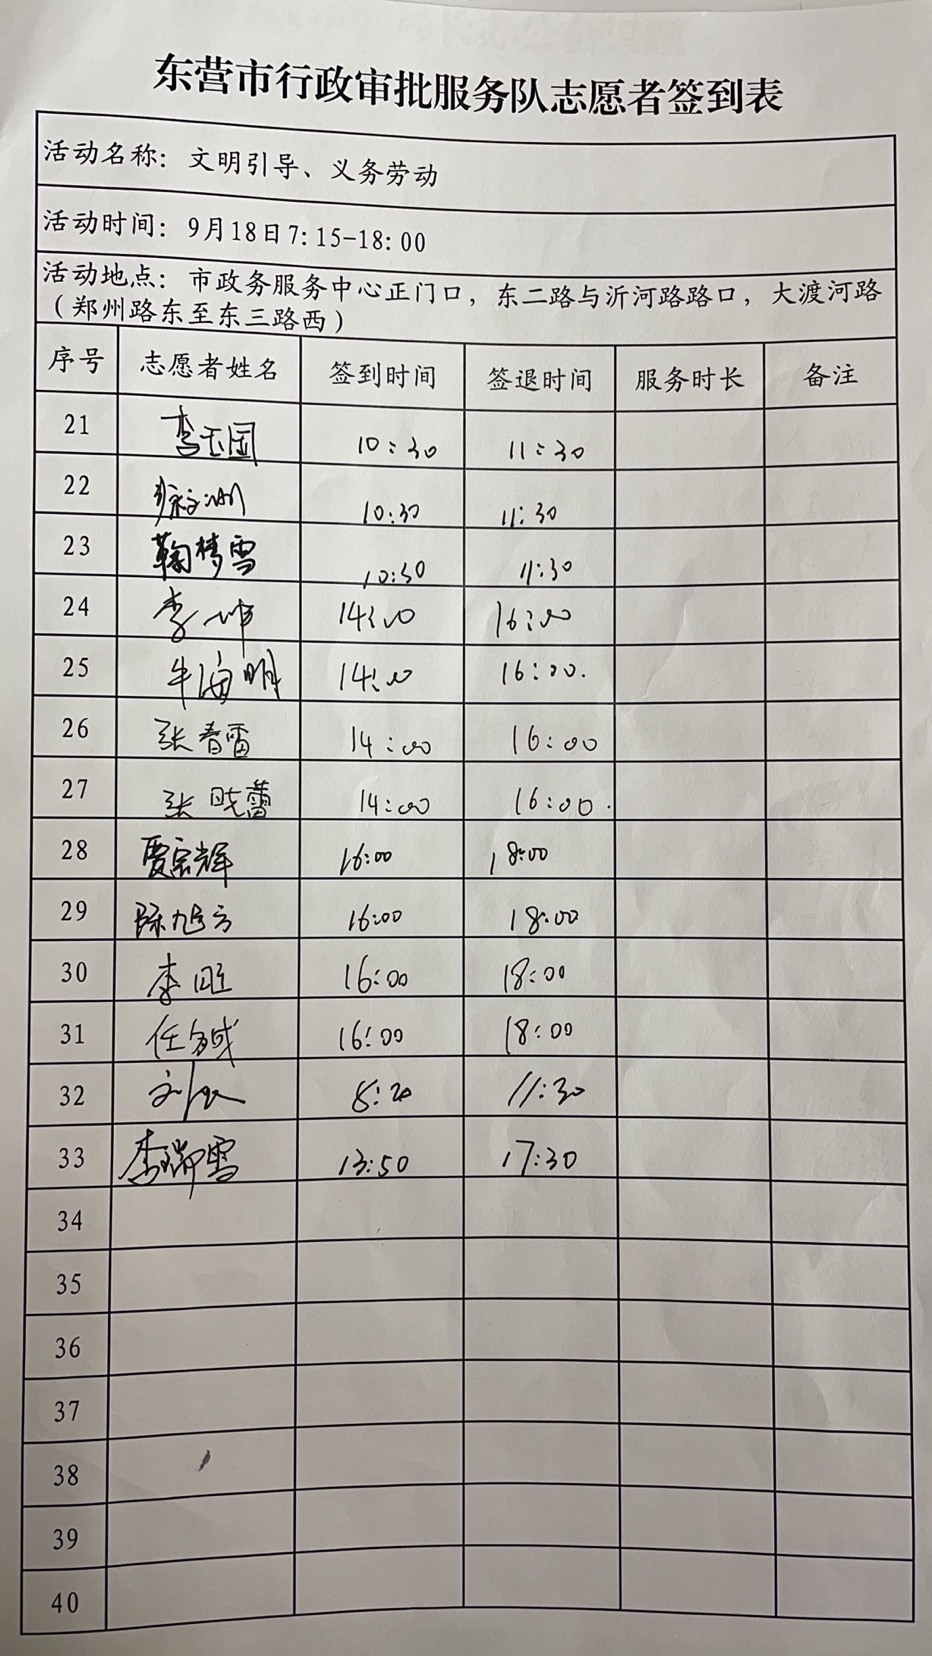 东营市行政审批服务队志愿者签到表
活动名称：文明引导、义务劳动
活动时间：9月18日7:15-18:00
活动地点：市政务服务中心正门口，东二路与沂河路路口，大渡河路
（郑州路东至东三路西）
序号 志愿者姓名 签到时间 签退时间 服务时长 备注
21 李玉国 10:30 11:30
22 10:30 11:30
23 鞠梦雪 10:30 11:30
24 李坤 14:00 16:00
25 牛海明 14:00 16:00.
26 张春雷 14:00 16:00
27 张晓蕾 14:00 16:00.
28 贾宗辉 16:00 18:00
29 陈旭方 16:00 18:00
30 李旺 16:00 18:00
31 16:00 18:00
32 8:20 11:30
33 李瑞雪 13:50 17:30
34
35
36
37
38
39
40